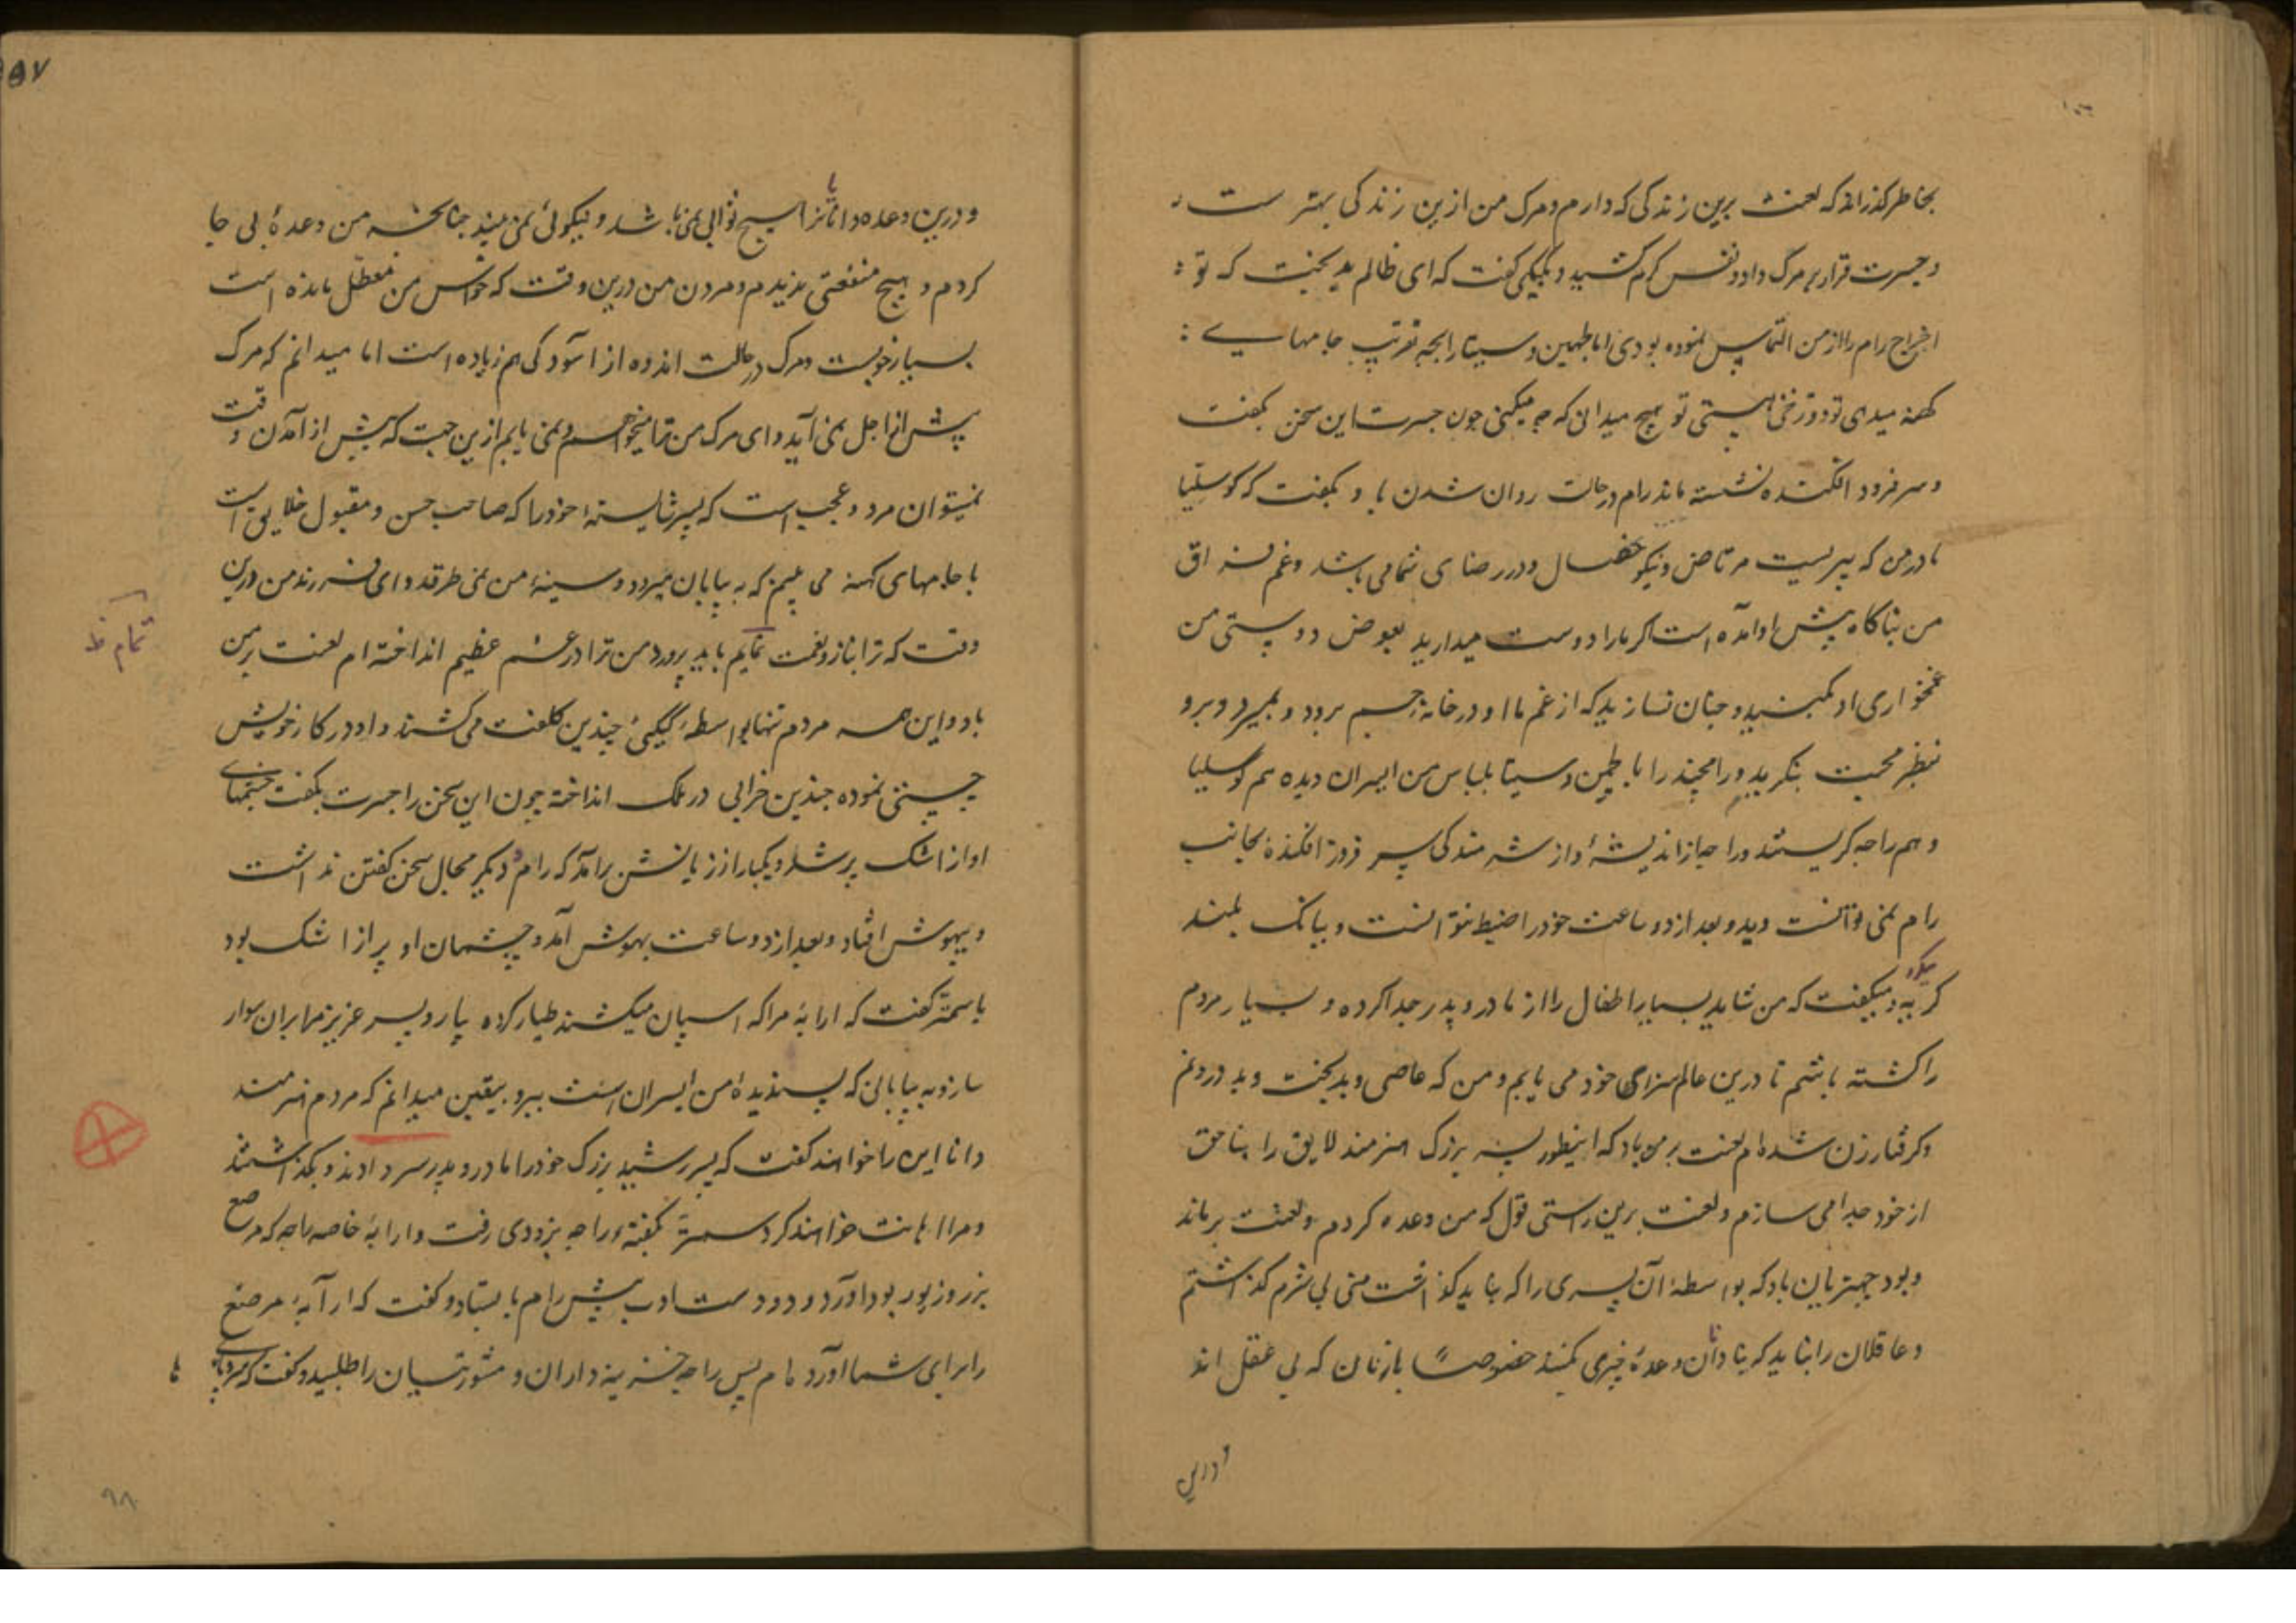 بخاطر گذراند که لعنت برین زندگی که دارم و مرک من ازین زندگی بهتر ست
و جسرت قرار بمرک داد و نفس گرم کشید و بکیکی گفت که ای ظالم بدبخت که تو
اخراج رام را از من التماس نموده بودی اما لچمن و سیتا را بجه تقریب جامهاے
کهنه میدهی تو دوزخی هستی تو هیچ میدانی که چه میکنی چون جسرت این سخن بگفت
و سر فرود افکنده نشسته ماند رام در حالت روان شدن با و بگفت که کوسلیا
مادر من که پیریست مرتاض و نیکو خصال و در رضای شما می باشد و غم فراق
من بناگاه پیش او آمده است اگر ما را دوست میدارید بعوض دوستی من
غمخواری او بکنید و چنان نسازید که از غم ما او در خانه جم برود و بمیرد و برو
نظر محبت بنگرید و رامچند را با لچمن و سیتا بلباس من ایسران دیده هم کوسلیا
و هم راجه گریستند و راجه از اندیشه و از شرمندگی سر فرود افکنده بجانب
رام نمی توانست دید و بعد از دو ساعت خود را ضبط نتوانست و ببانک بلند
گریه میکرد و میگفت که من شاید بسیار اطفال را از مادر و پدر جدا کرده و بسیار مردم
را کشته باشم تا درین عالم سزای خود می یابم و من که عاصی و بدبخت و بد درونم
و گرفتار زن شده ام لعنت بر من باد که اینطور پسر بزرگ هنرمند لایق را بناحق
از خود جدا می سازم و لعنت برین راستی قول که من وعده کردم و لعنت بر ماند
و بود چهتریان باد که بواسطهٔ آن پسری را که نباید گذاشت منی بی شرم گذاشتم
و عاقلان را نباید که بنادان وعدهٔ خیری کنند خصوصاً با زنان که بی عقل اند
و درین
۹۷
و درین وعده دانا را هیچ ثوابی نمی باشد و نیکوئی نمی بیند چنانچه من وعدهٔ بی جا
کردم و هیچ منفعتی ندیدم و مردن من درین وقت که حواس من معطل مانده است
بسیار خوبست و مرک در حالت اندوه از آسودگی هم زیاده است اما میدانم که مرک
پیش از اجل نمی آید و ای مرک من ترا میخواهم و نمی یابم ازین جهت که پیش از آمدن وقت
نمیتوان مرد و عجب است که پسر شایستهٔ خود را که صاحب حسن و مقبول خلایق است
با جامهای کهنه می بینم که به بیابان میرود و سینهٔ من نمی طرقد و ای فرزند من درین
وقت که ترا بناز و نعمت تمام باید پرورد من ترا در غم عظیم انداخته ام لعنت بر من
تمام ظ
باد و این همه مردم تنها بواسطهٔ کیکئی چندین کلفت می کشند و او در کار خویش
چستی نموده چندین خرابی در ملک انداخته چون این سخن را جسرت بگفت چشمهای
او از اشک پر شد و یکبار از زبانش برآمد که رام و دیگر مجال سخن گفتن نداشت
و بیهوش افتاد و بعد از دو ساعت بهوش آمد و چشمان او پر از اشک بود
با سمتر گفت که ارابهٔ مرا که اسپان میکشند طیار کرده بیار و پسر عزیز مرا بران سوار
ساز و به بیابانی که پسندیدهٔ من ایسران است ببر و بیقین میدانم که مردم هنرمند
دانا این را خواهند گفت که پسر رشید بزرگ خود را مادر و پدر سر دادند و بگذاشتند
و مرا اهانت خواهند کرد سمتر بگفتهٔ راجه بزودی رفت و ارابهٔ خاصه راجه که مرصع
بزر و زیور بود آورد و دو دست ادب پیش رام بایستاد و گفت که ارابهٔ مرصع
را برای شما آورده ام پس راجه خزینه داران و مشورتیان را طلبید و گفت که
۹۸